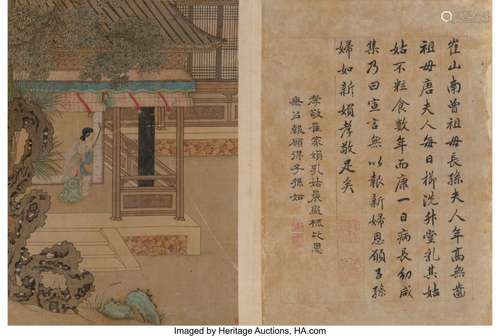 崔山南曾祖母長孫夫人年高無齒
祖母唐夫人每日櫛洗升堂乳其姑
姑不粒食數年而康一日病長幼咸
集乃曰宣言無以報新婦恩願子孫
婦如新媍孝敬足矣
孝敬崔家媍乳姑晨盥櫛此恩
無㠯報願得子孫如
Imaged by Heritage Auctions, HA.com